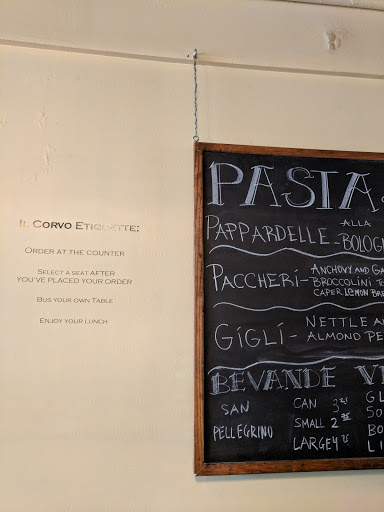 IL CORVO ETIQUETTE:
ORDER AT THE COUNTER
SELECT A SEAT AFTER
YOU'VE PLACED YOUR ORDER
BUS YOUR OWN TABLE
ENJOY YOUR LUNCH
PASTA
PAPPARDELLE - ALLA
BOLOGN
PACCHERI - ANCHOVY AND GA
BROCCOLINI TO
CAPER LEMON BRE
GIGLI - NETTLE AN
ALMOND PE
BEVANDE VI
SAN
PELLEGRINO
CAN 3
SMALL 2
LARGE 4
GL
50
BO
LI